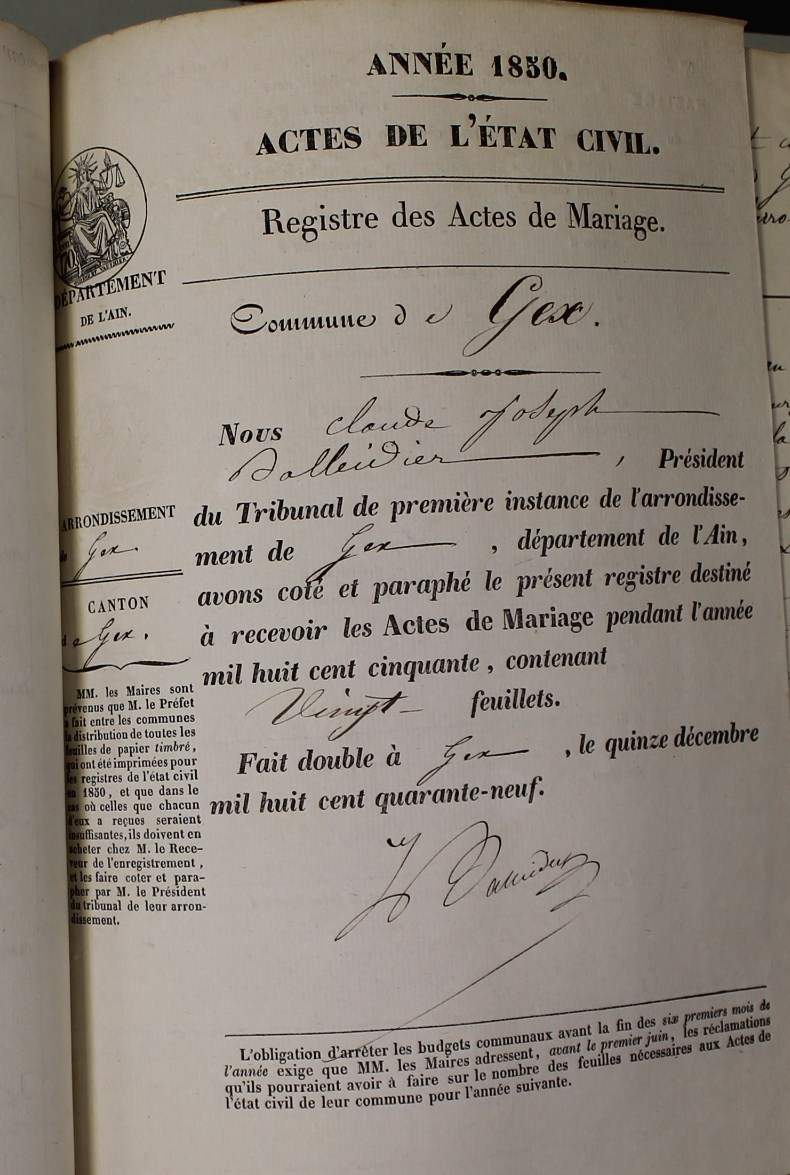 ANNÉE 1850.
ACTES DE L'ÉTAT CIVIL.
Registre des Actes de Mariage.
DÉPARTEMENT
DE L'AIN.
Commune de Gex.
Nous Claude Joseph
, Président
du Tribunal de première instance de l'arrondisse-
ment de Gex, département de l'Ain,
avons coté et paraphé le présent registre destiné
à recevoir les Actes de Mariage pendant l'année
mil huit cent cinquante, contenant
Vingt feuillets.
Fait double à Gex, le quinze décembre
mil huit cent quarante-neuf.
ARRONDISSEMENT
de Gex.
CANTON
de Gex.
MM. les Maires sont
prévenus que M. le Préfet
a fait entre les communes
la distribution de toutes les
feuilles de papier timbré,
qui ont été imprimées pour
les registres de l'état civil
en 1850, et que dans le
cas où celles que chacun
d'eux a reçues seraient
insuffisantes, ils doivent en
acheter chez M. le Rece-
veur de l'enregistrement,
et les faire coter et para-
pher par M. le Président
du tribunal de leur arron-
dissement.
L'obligation d'arrêter les budgets communaux avant la fin des six premiers mois de
l'année exige que MM. les Maires adressent, avant le premier juin, les réclamations
qu'ils pourraient avoir à faire sur le nombre des feuilles nécessaires aux Actes de
l'état civil de leur commune pour l'année suivante.